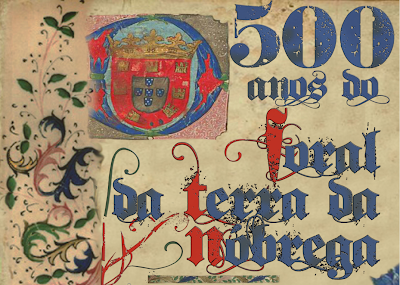 500
anos do
foral
da terra da
Nóbrega